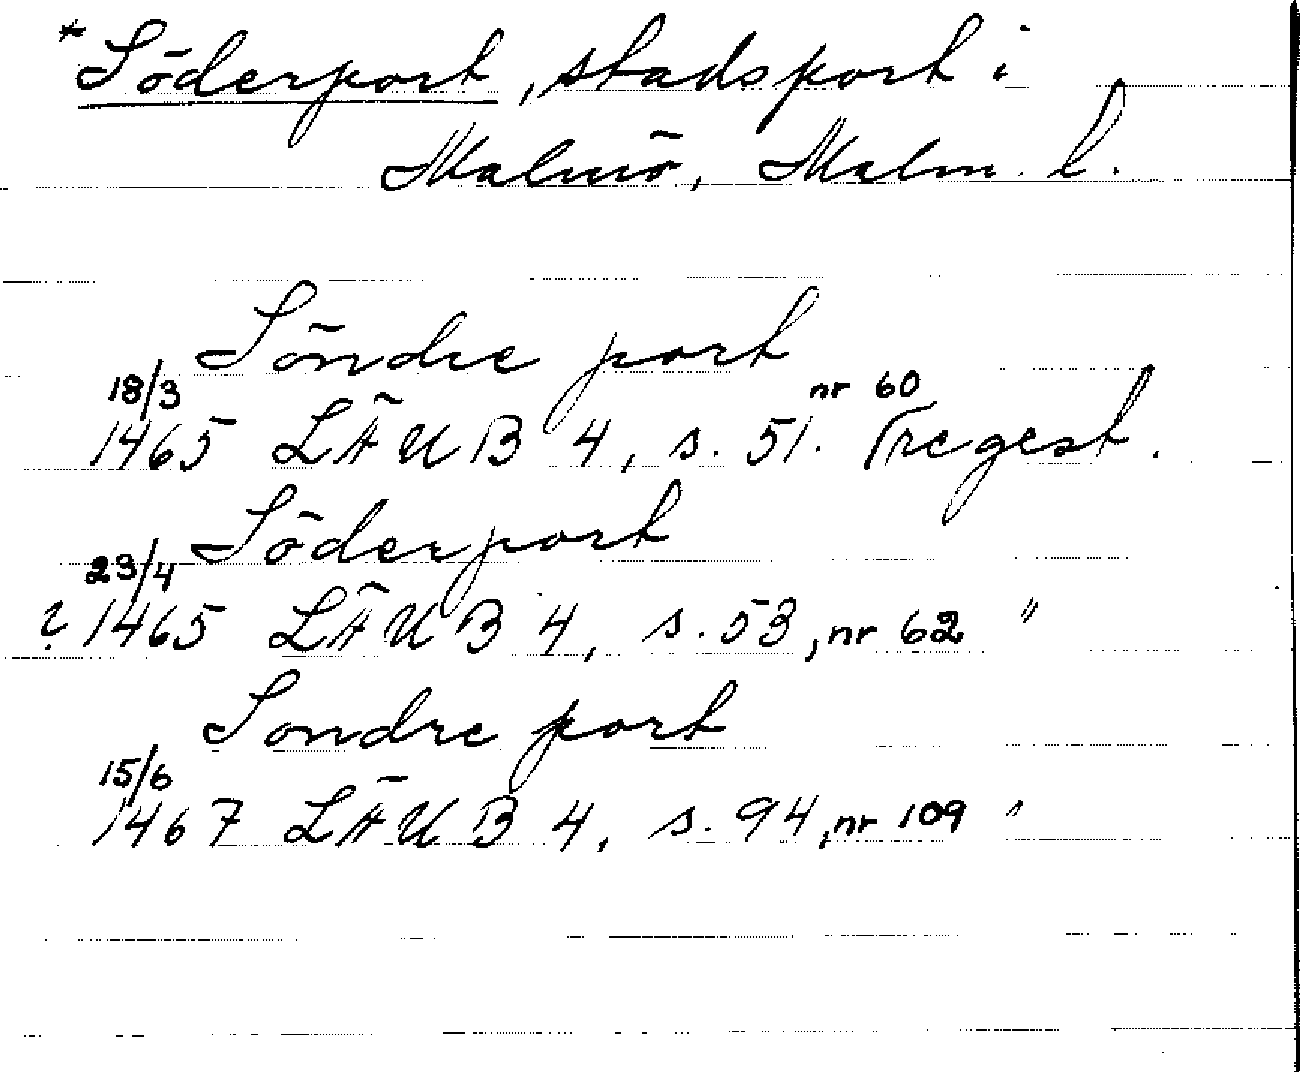 *Söderport, stadsport i
Malmö, Malm. l.
Söndre port
18/3 nr 60
1465 LÄUB 4, s. 51. regest.
Söderport
23/4
? 1465 LÄUB 4, s. 53, nr 62 "
Sondre port
15/6
1467 LÄUB 4, s. 94, nr 109 "